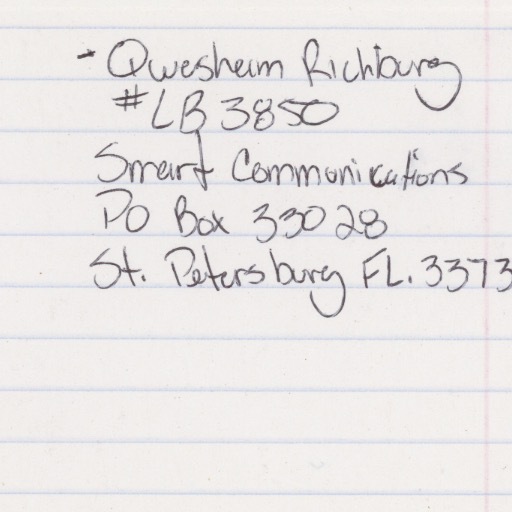 - Qwesheim Richburg
# LB3850
Smart Communications
PO Box 33028
St. Petersburg FL. 3373